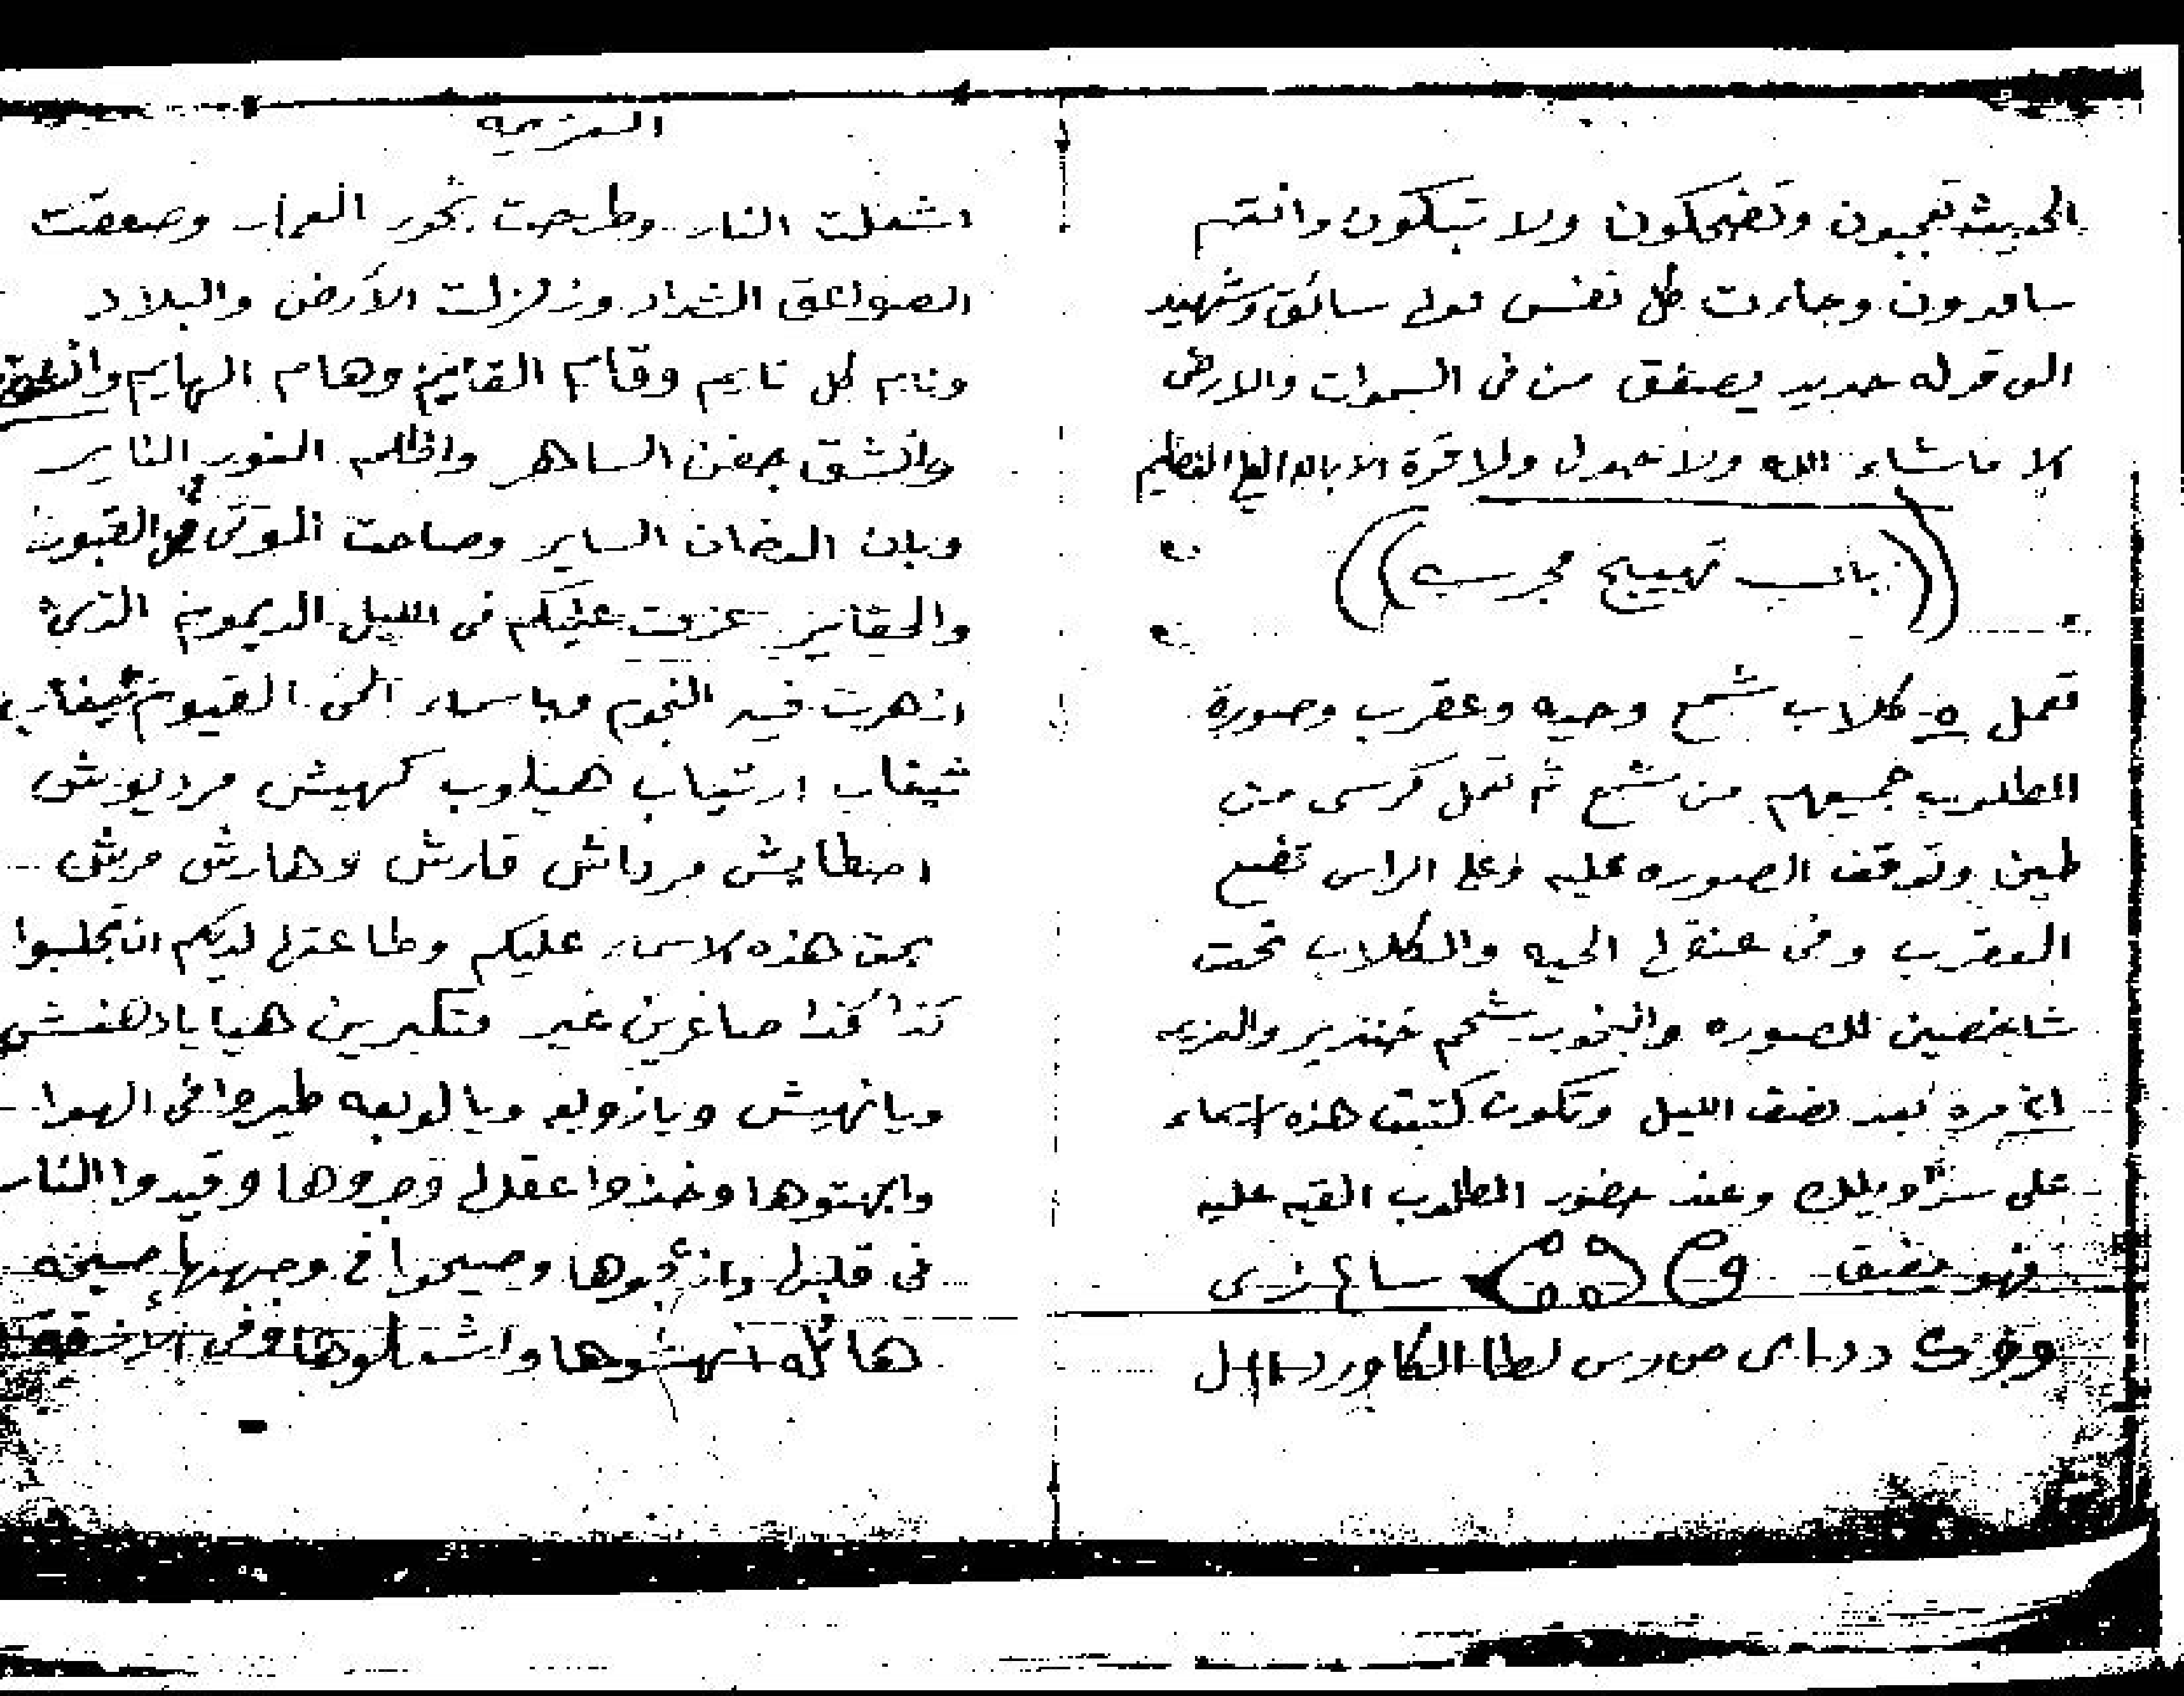 الحديث تعجبون وتضحكون ولا تبكون وانتم
سامدون وجاءت كل نفس معها سائق وشهيد
الى قوله حديد يصعق من فى السموات والارض
الا ماشاء الله ولا حول ولا قوة الا بالله العلى العظيم
((باب تهييج مجرب))
تعمل ٥ كلاب شمع وحيه وعقرب وصورة
المطلوب جميعهم من شمع ثم تعمل كرسى من
طين وتوقف الصوره عليه وعلى الراس تضع
العقرب وفى عنقها الحيه والكلاب تحت
شاخصين للصوره والبخور شحم خنزير والعزيمه
مره بعد نصف الليل وتكون كتبت هذه الاسماء
على سراويلك وعند حضور المطلوب القيه عليه
فهو يفيق
العزيمه
اشعلت النار وطرحت بخور العمار وصعقت
الصواعق الشداد وزلزلت الارض والبلاد
ونام كل نايم وقام القائم وهام الهايم
وانشق جفن الساهر واظلم النور الناير
وبان الدخان الساير وصاحت الموتى من القبور
والحفاير عزمت عليكم فى الليل الديموم الذى
ازهرت فيه النجوم وباسماء الحى القيوم شيغاب
شيغاب ارتياب هيلوب كهيش مرديوش
اصطايش مرداش قارش وهارش مرش
بحق هذه الاسماء عليكم وطاعتها لديكم ان تجلبوا
كذا كذا صاغرين غير متكبرين هيا يا دهنش
ويا نهيش ويا زوبعه ويا لوبعه طيروا فى الهوا
وابهتوها وخذوا عقلها وجروها وقيدوا النار
فى قلبها وازعجوها وصيحوا فى وجهها صيحة
هائله انهشوها واشعلوها وفى الازقة